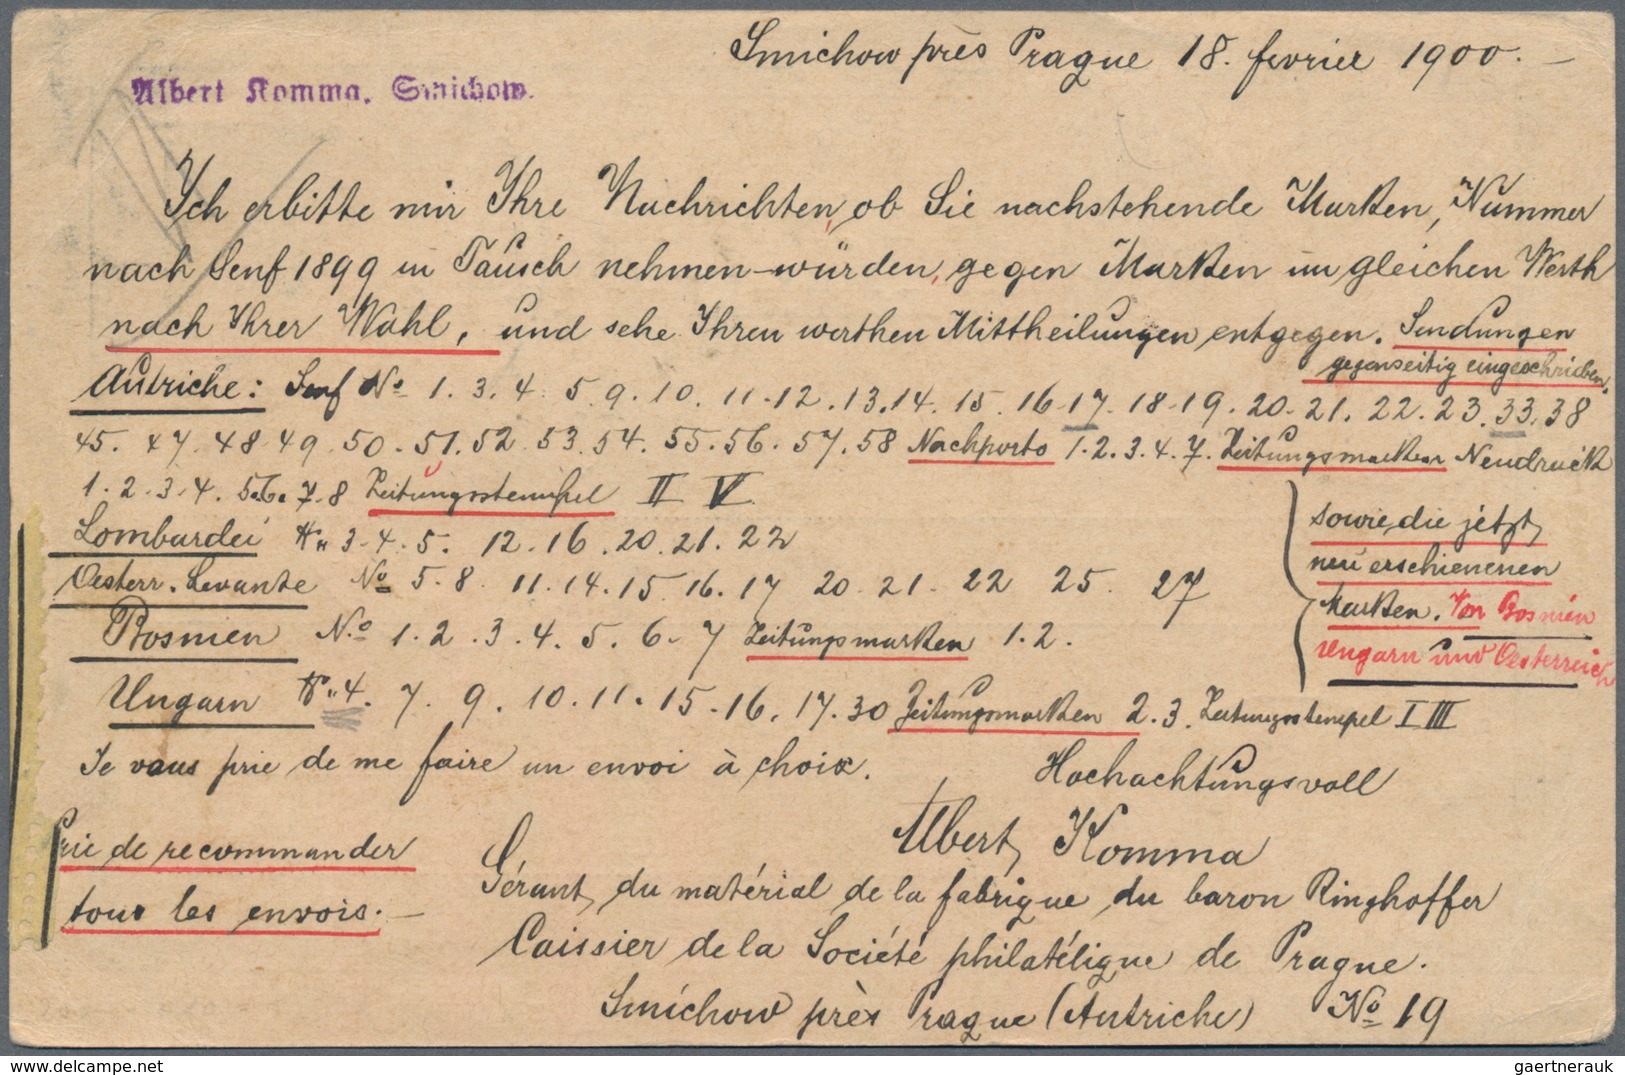 Smichow près Prague 18. fevrier 1900. —
Albert Komma, Smichow.
Ich erbitte mir Ihre Nachrichten, ob Sie nachstehende Marken, Nummer
nach Senf 1899 in Tausch nehmen würden, gegen Marken im gleichen Werth
nach Ihrer Wahl, und sehe Ihren werthen Mittheilungen entgegen. Sendungen
gegenseitig eingeschrieben.
Autriche: Senf No 1. 3. 4. 5. 9. 10. 11. 12. 13. 14. 15. 16. 17. 18. 19. 20. 21. 22. 23. 33. 38
45. 47. 48. 49. 50. 51. 52. 53. 54. 55. 56. 57. 58 Nachporto 1. 2. 3. 4. 7. Zeitungsmarken Neudruck
1. 2. 3. 4. 5. 6. 7. 8 Zeitungsstempel II V.
Lombardei N. 3. 4. 5. 12. 16. 20. 21. 22
Oesterr. Levante No 5. 8. 11. 14. 15. 16. 17 20. 21. 22 25. 27
Bosnien No 1. 2. 3. 4. 5. 6. 7 Zeitungsmarken 1. 2.
Ungarn N. 4. 7. 9. 10. 11. 15. 16. 17. 30 Zeitungsmarken 2. 3. Zeitungsstempel I III
sowie die jetzt
neu erschienenen
Marken. Von Bosnien
Ungarn und Oesterreich
Je vous prie de me faire un envoi à choix.
Hochachtungsvoll
Albert Komma
Prie de recommander
tous les envois. —
Gérant du matérial de la fabrique du baron Ringhoffer
Caissier de la Société philatélique de Prague.
Smichow près Prague (Autriche) No 19
gaertnerauk / delcampe.net